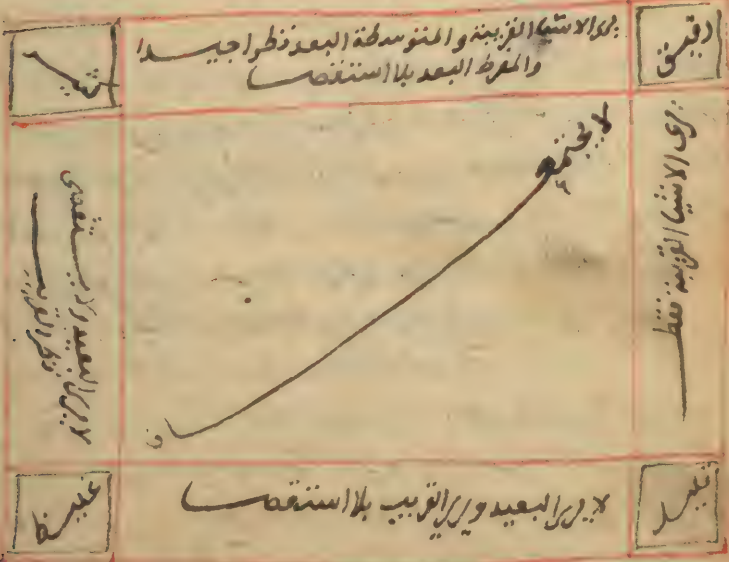 دقيق
يرى الاشيا القريبة والمتوسطة البعد نظرا جيدا
والمفرط البعد بلا استقصا
كثير
يرى الاشيا القريبة فقط
لا يجتمعان
لا يرى البعيد ولا يستقصى
نظر القريب
قليل
لا يرى البعيد ويرى القريب بلا استقصا
غليظ